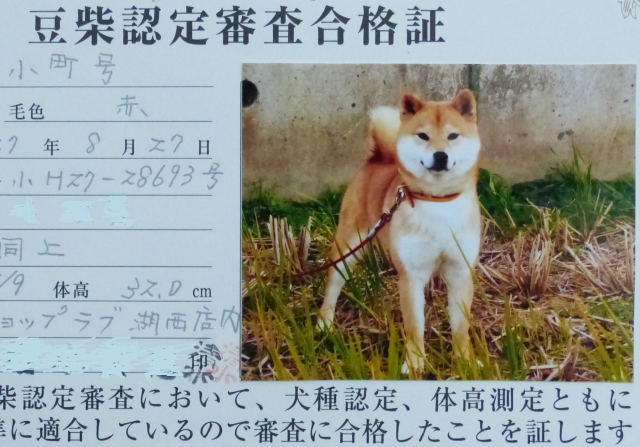 豆柴認定審査合格証
小町号
毛色 赤
7 年 8 月 27 日
小 H27-28693号
同上
/9 体高 32.0 cm
ョップラブ 湖西店内
印
柴認定審査において、犬種認定、体高測定ともに
準に適合しているので審査に合格したことを証します